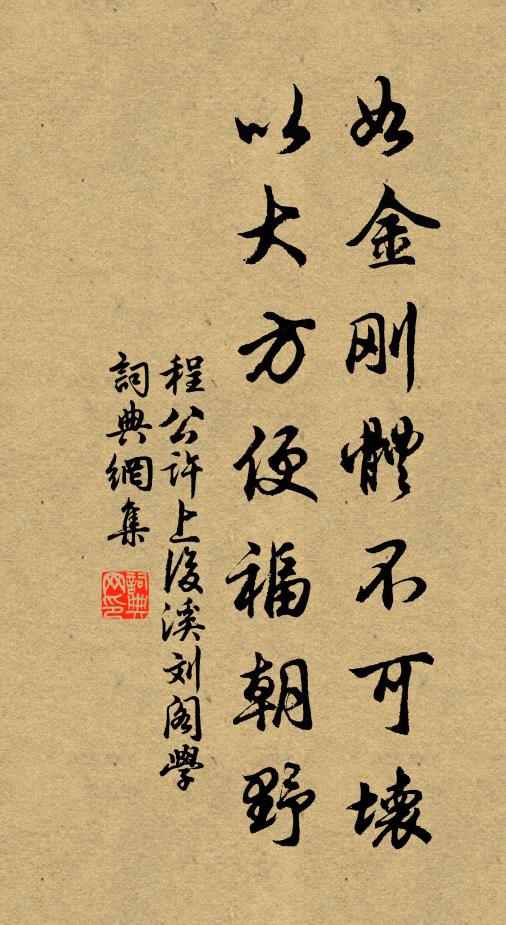 如金刚體不可壞
以大方便福朝野
程公许上後溪刘阁學
詞典網集
詞典网印